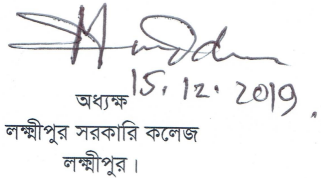 15.12.2019
অধ্যক্ষ
লক্ষ্মীপুর সরকারি কলেজ
লক্ষ্মীপুর।